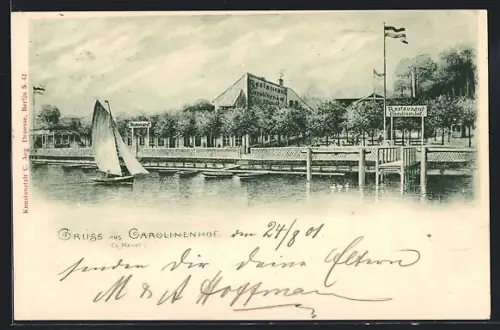 Restaurant
Carolinenhof
Restaurant
Carolinenhof
Restaurant
Kunstanstalt C. Aug. Druesse, Berlin S. 42
Gruss aus Carolinenhof. den 24/8 01.
senden Dir Deine Eltern
M & A Hoffmann